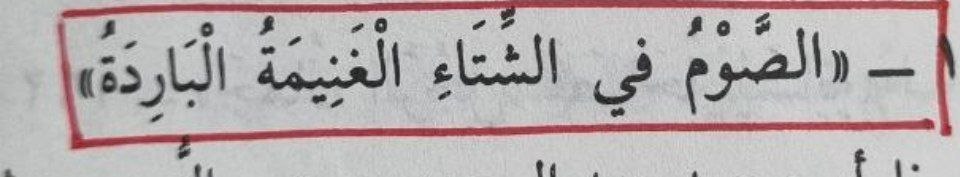 ١ – «الصَّوْمُ في الشِّتَاءِ الْغَنِيمَةُ الْبَارِدَةُ»